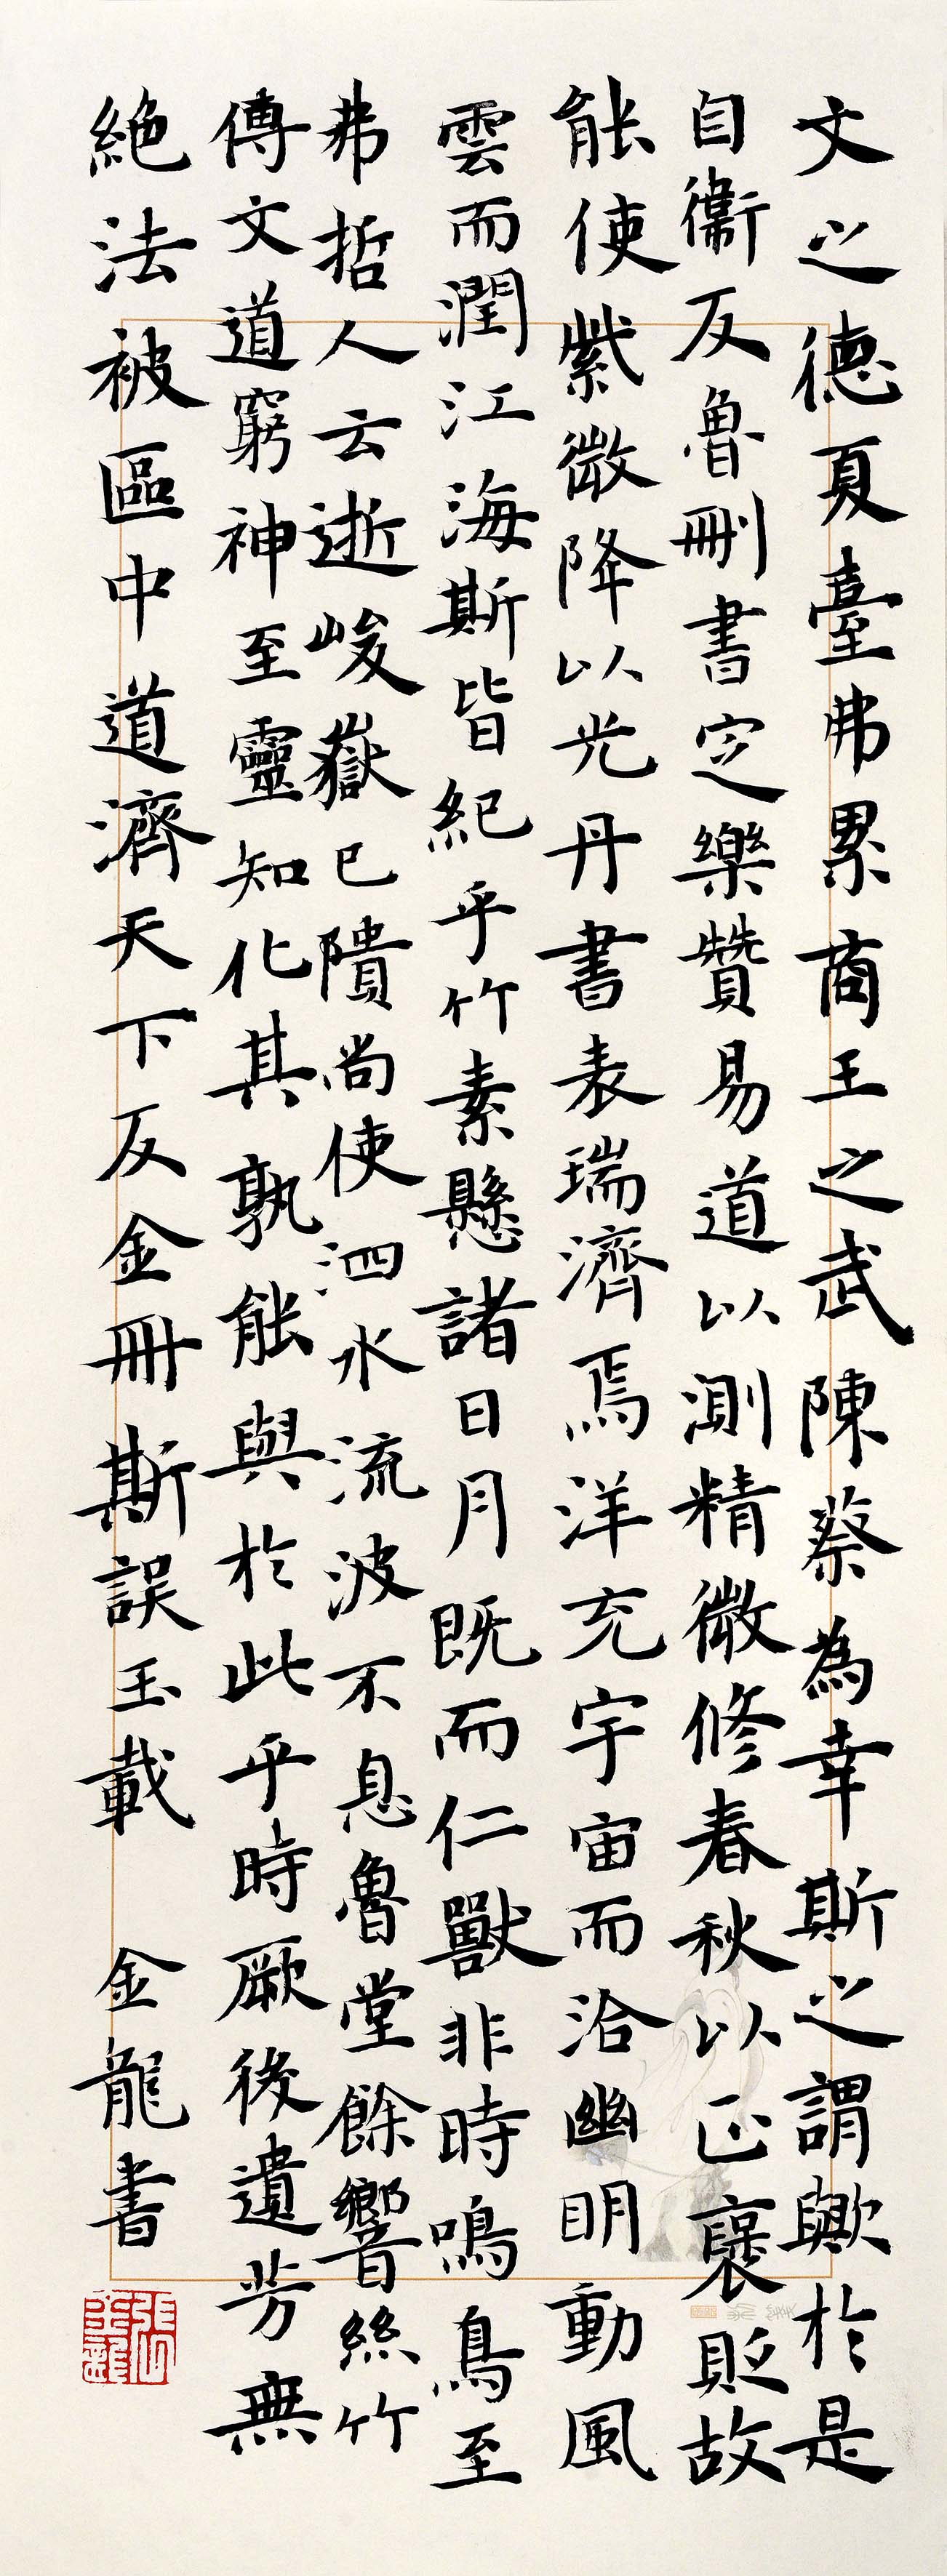 文之德夏臺弗累商王之武陳蔡為幸斯之謂歟於是
自衛反魯刪書定樂贊易道以測精微修春秋以正褒貶故
能使紫微降以光丹書表瑞濟焉洋充宇宙而洽幽明動風
雲而潤江海斯皆紀乎竹素懸諸日月既而仁獸非時鳴鳥至
弗哲人云逝峻嶽已隤尚使泗水流波不息魯堂餘響絲竹
傳文道窮神至靈知化其孰能與於此乎時厥後遺芳無
絕法被區中道濟天下反金冊斯誤玉載
金龍書